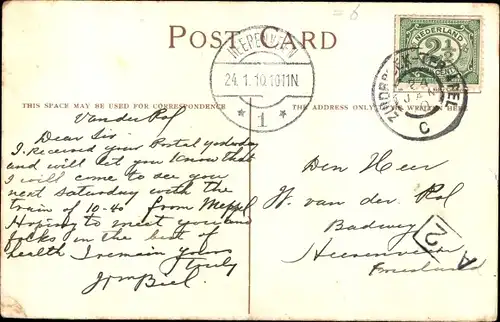 = 6
POST CARD
HEERENVEEN
24.1.10.1011N
* 1 *
NEDERLAND
2½
CENT
24
JAN
C
THIS SPACE MAY BE USED FOR CORRESPONDENCE
THE ADDRESS ONLY
BE WRITTEN HERE
Van der Pol
Dear Sir
I received your Postal yesterday
and will let you know that
I will come to see you
next Saturday with the
train of 10-40 from Meppel
Hoping to meet you and
folks in the best of
health I remain yours
truly
Den Heer
W. van der Pol
Badweg
Heerenveen
Friesland
A
2